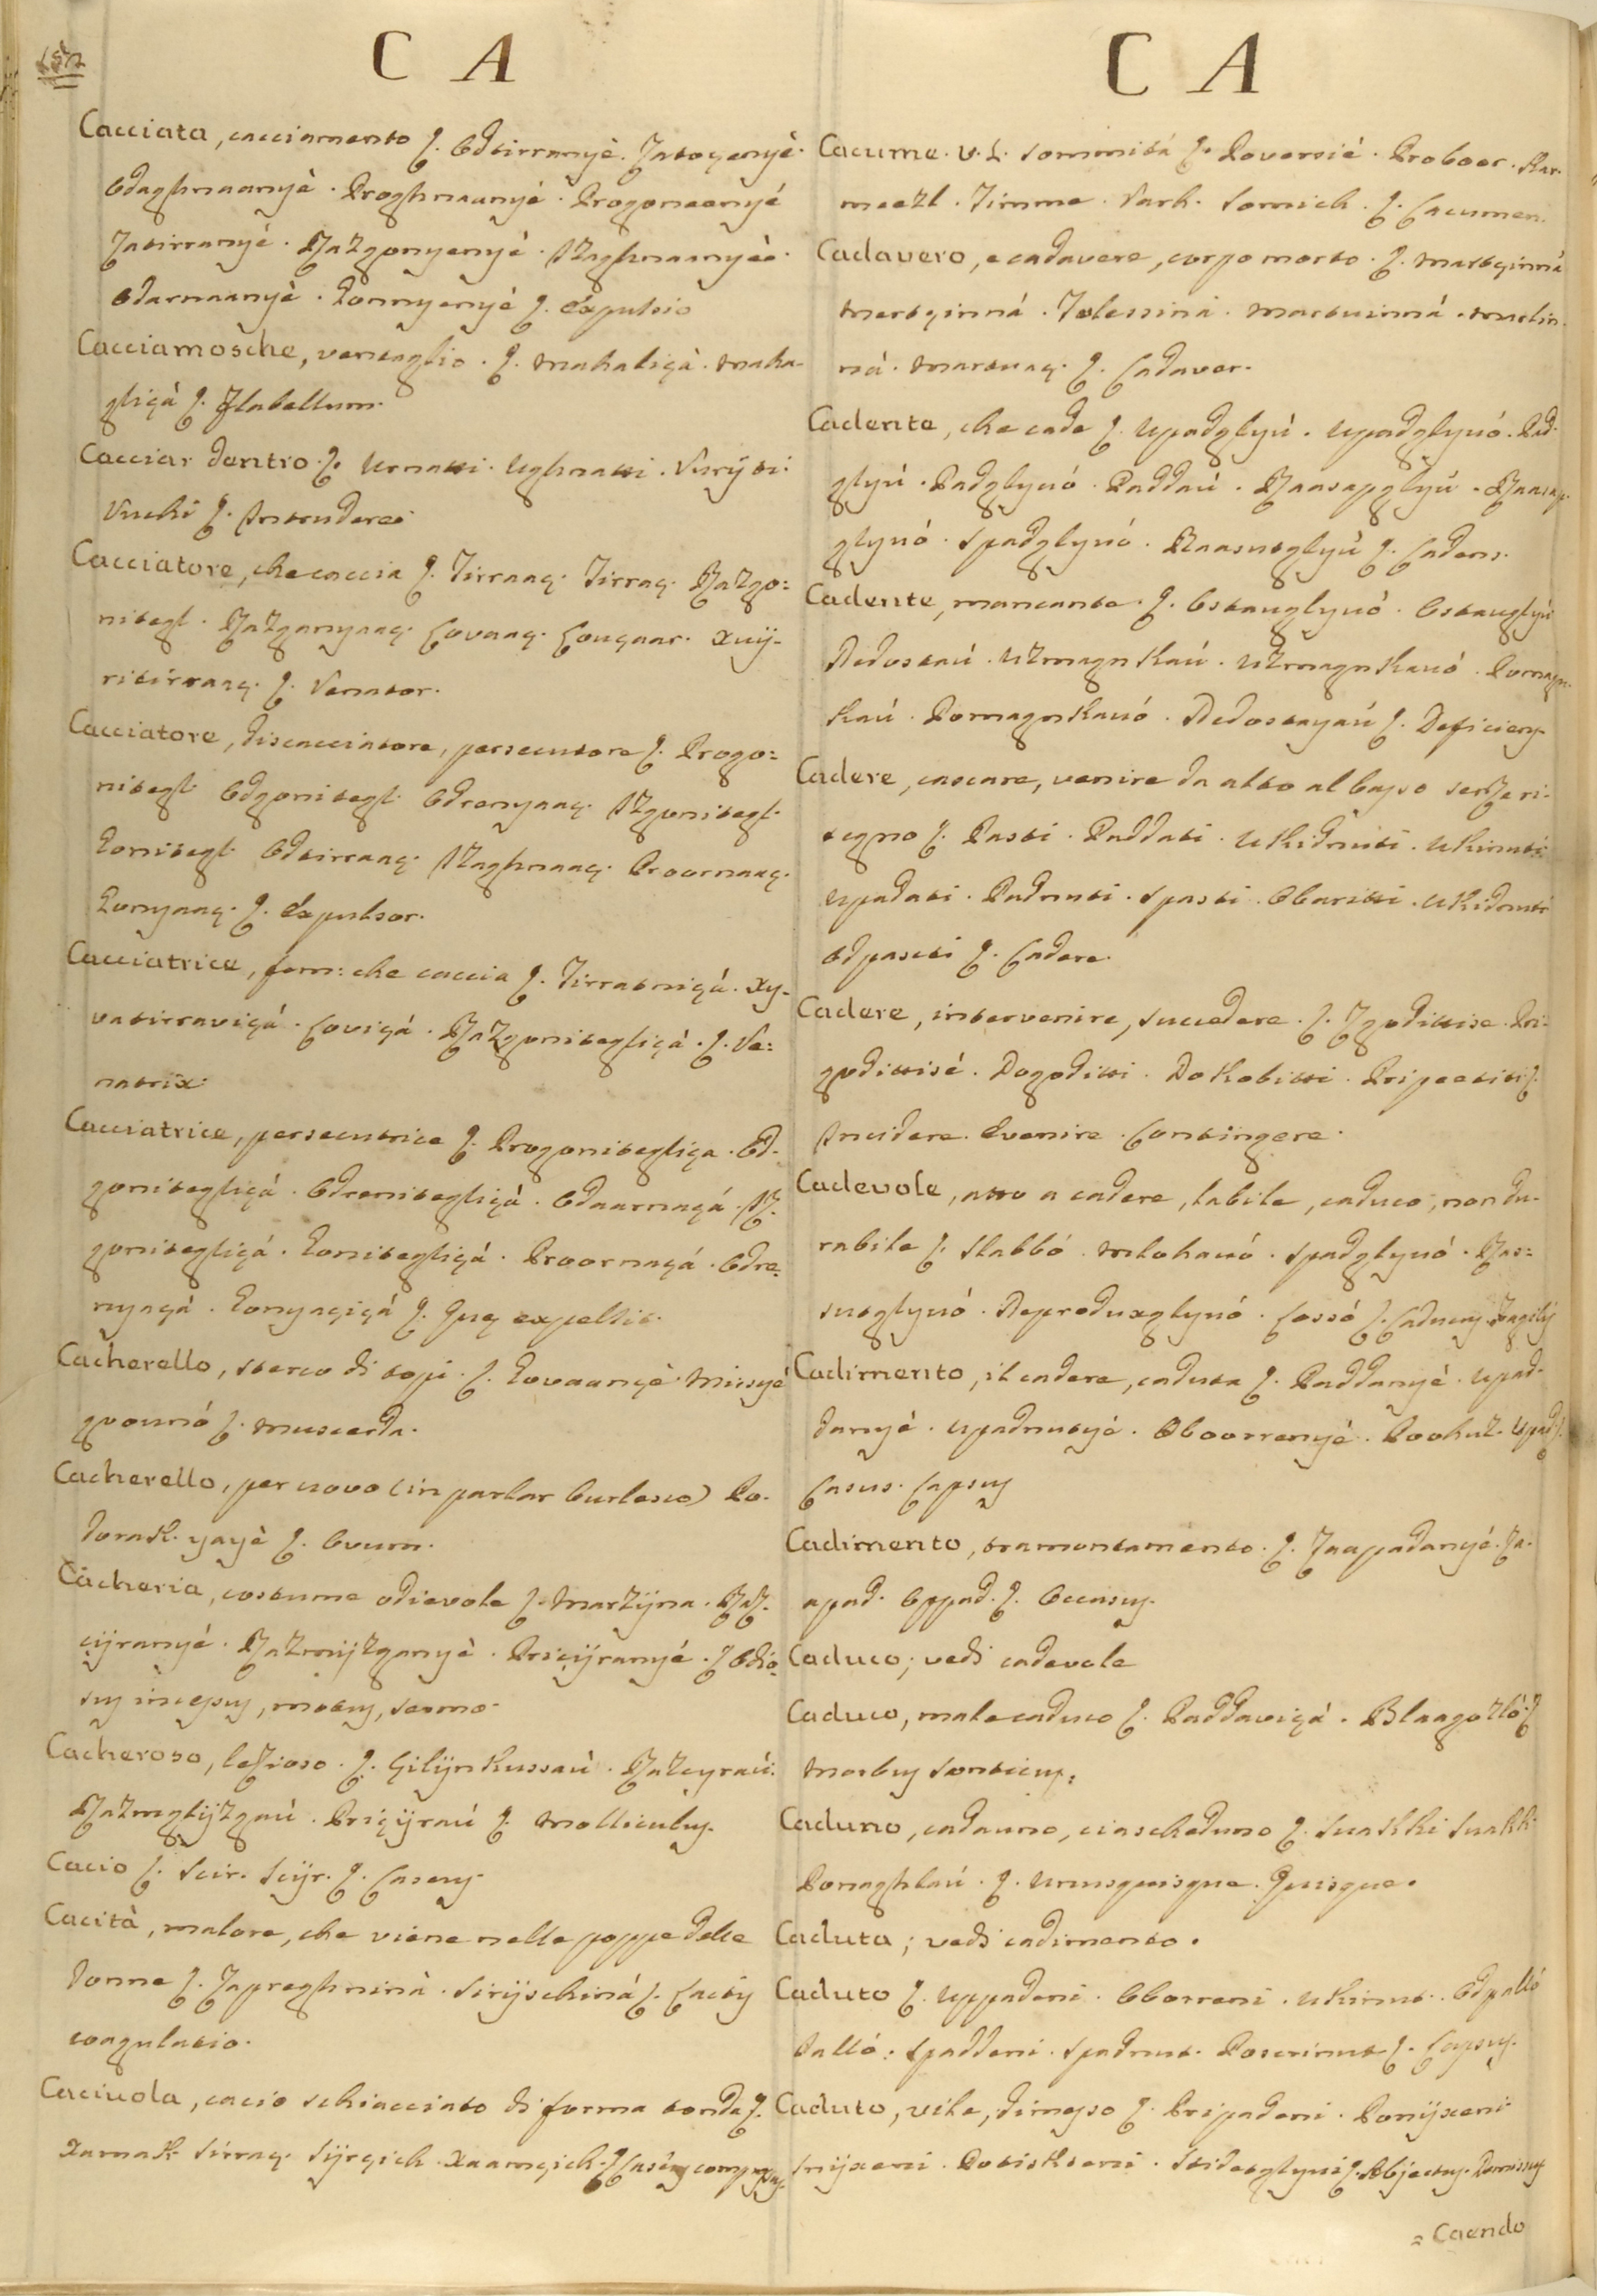 C A
Cacciata, cacciamento ſ. Odtirranyè. Jatogenyè.
Odaghnaanyè. Proghnaanyé. Progonaanyé
Jatirranyé. Razgonyenyè. Izaghnaanyèè.
Odarnaanyè. Gonnyenyè ſ. Expulsio
Cacciamosche, ventaglio. ſ. Mahaliça. Maha-
gliça ſ. Flabellum.
Cacciar dentro. ſ. Urnatti. Ughnatti. Vuriÿti.
Vuchi ſ. Intrudere.
Cacciatore, che caccia ſ. Tirraaç. Tirraç. Razgo=
nitegl. Razganyaaç. Lovaaç. Lovçaar. Xvÿ-
ritirraaç. ſ. Venator.
Cacciatore, discacciatore, persecutore ſ. Progo=
nitegl. Odgonitegl. Odrenyaaç. Izgonitegl.
Gonitegl. Odtirraaç. Izaghnaaç. Proornaaç.
Gonyaaç. ſ. Expulsor.
Cacciatrice, fem: che caccia ſ. Tirratniçá. Xy-
vatirraviçá. Loviçá. Razgonitegliçà. ſ. Ve=
natrix.
Cacciatrice, persecutrice ſ. Progonitegliça. Od-
gonitegliçá. Odrenitegliçà. Odaarnaçá. Iz-
gonitegliçá. Gonitegliçá. Proornaçá. Odre-
nyaçá. Gonyaçiçá ſ. Quę expellit.
Cacherello, sterco di topi. ſ. Govaançè. Missyé
govunó ſ. Muscerda.
Cacherello, per uovo (in parlar burlesco) Po-
dorask. yayè ſ. Ovum.
Cacheria, costume odievole ſ. Marzÿna. Raz-
çÿranyé. Razmÿzganyè. Priçÿranyé. ſ. Odio-
sus incepsus, motus, sermo.
Cacheroso, lezioso. ſ. Gilÿnkussaù. Razcyraú.
Razmglijzgaù. Priçÿraú ſ. Molliculus.
Cacio ſ. Sir. Siÿr. ſ. Caseus.
Cacità, malore, che viene nelle poppe delle
donne ſ. Zapreghninà. Sirÿschiná ſ. Lactis
coagulatio.
Caciuola, cacio schiacciato di forma tonda ſ.
Xarnak. Sirraç. Sÿrçich. Xaamçich. ſ. Caseus
C A
Cacume. V. L. sommità ſ. Poversié. Proboor. Har-
meezl. Timme. Varh. Somich. ſ. Cacumen.
Cadavero, e cadavere, corpo morto. ſ. Martçinná
Mertçinná. Telessina. Martvinná. Merlin-
ná. Martvaç. ſ. Cadaver.
Cadente, che cade ſ. Upadglyú. Upadglyuó. Pad-
glyú. Padglyuó. Paddaú. Raasapglyú. Raasap-
glyuó. Spadglyuó. Raasutglyú ſ. Cadens.
Cadente, mancante. ſ. Ostauglyuó. Ostauglyú
Nedostaú. Uzmagnkaú. Uzmagnkauó. Pomagn-
kaú. Pomagnkauó. Nedostayaú ſ. Deficiens.
Cadere, cascare, venire da alto al basso senza ri-
tegno ſ. Pasti. Paddati. Ukidnuti. Ukinuti.
Upadati. Padnuti. Spasti. Obaritti. Ukidnuti
Odpasti ſ. Cadere.
Cadere, intervenire, succedere. ſ. Zgodittise. Pri-
godittisé. Dogoditti. Dokobitti. Pripeetiti ſ.
Incidere. Evenire. Contingere.
Cadevole, atto a cadere, labile, caduco, non du-
rabile ſ. Slabbó. Mlohauó. Spadglyuó. Ras=
sueglyuó. Neproduxglyuó. Lossó ſ. Caducus. Fragilis
Cadimento, il cadere, caduta ſ. Paddanyé. Upad-
danyé. Upadnutyé. Oboorrenyé. Pookuz. Upad ſ.
Casus. Lapsus
Cadimento, tramontamento. ſ. Zaapadanyé. Za-
apad. Oppad. ſ. Occasus.
Caduco; vedi cadevole
Caduco, male caduco ſ. Paddaviçá. Blaagozló. ſ
Morbus Sonticus.
Caduno, cadauno, ciascheduno ſ. Svakki Svakk
Pomaghlaú. ſ. Unusquisque. Quisque.
Caduta; vedi cadimento.
Caduto ſ. Uppadeni. Oborreni. Ukinut. Odpalló
Palló. Spaddeni. Spadnut. Poscrinut ſ. Lapsus.
Caduto, vile, dimesso ſ. Pripadeni. Ponÿxeni
Snÿxeni. Potiskteni. Stidetglyui ſ. Abjectus. Demissus
= Caendo